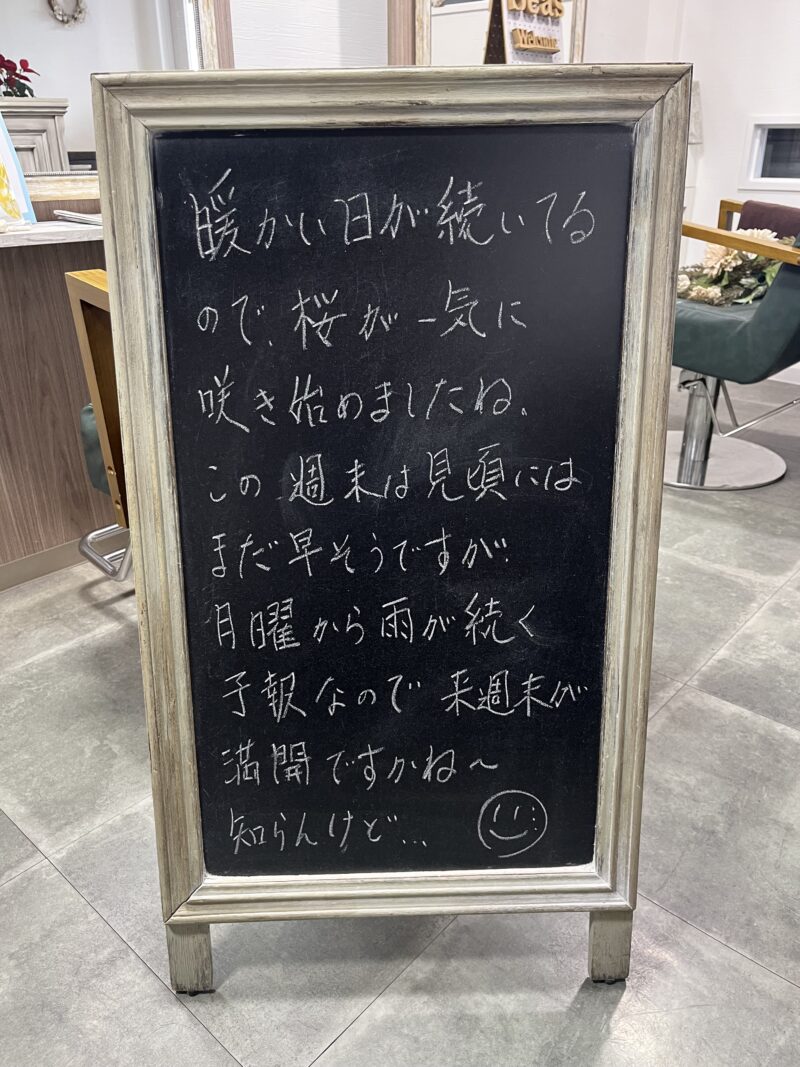 beas
Welcome
暖かい日が続いてる
ので、桜が一気に
咲き始めましたね。
この週末は見頃には
まだ早そうですが、
月曜から雨が続く
予報なので来週末が
満開ですかね〜
知らんけど...